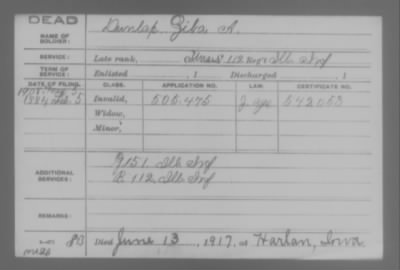 DEAD
NAME OF SOLDIER: Dunlap, Ziba A.
SERVICE: Late rank, 112 Reg't Ills Inf
TERM OF SERVICE: Enlisted , 1 Discharged , 1
DATE OF FILING. CLASS. APPLICATION NO. LAW. CERTIFICATE NO.
1884 5 Invalid, 505.475 542053
Widow,
Minor,
ADDITIONAL SERVICES: G 151 Ills Inf
112 Ills Inf
REMARKS:
Died June 13, 1917, at Harlan, Iowa